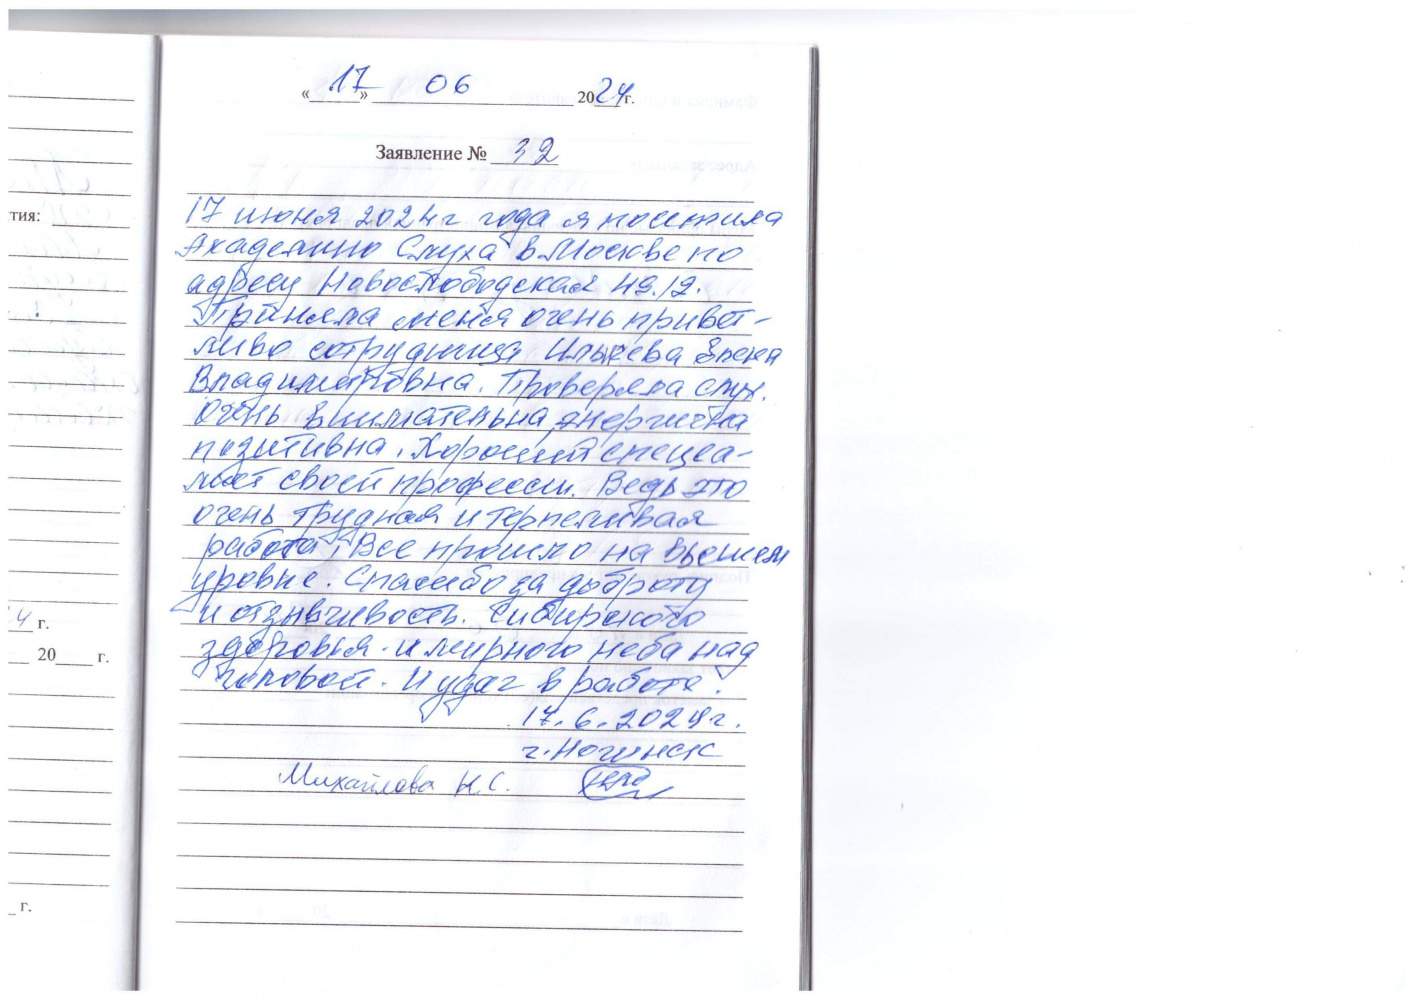 «17» 06 2024 г.
Заявление № 32
17 июня 2024 г года я посетила
Академию Слуха в Москве по
адресу Новослободская 49/2.
тия:
Приняла меня очень привет-
ливо сотрудница Елена
Владимировна. Проверяла слух.
очень внимательна, энергична
позитивна. Хороший специа-
лист своей профессии. Ведь это
очень трудная и терпеливая
работа. Все прошло на высшем
уровне. Спасибо за доброту
и отзывчивость. Сибирского
здоровья и мирного неба над
головой. И удач в работе.
17.6.2024 г.
г. Ногинск
Михайлова Н.С.
4 г.
20 г.
г.